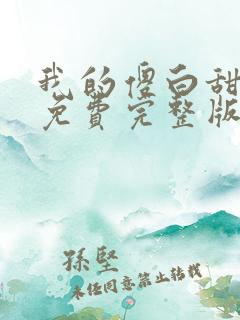 我的傻白甜
免费完整版
孫堅
未经同意禁止转载